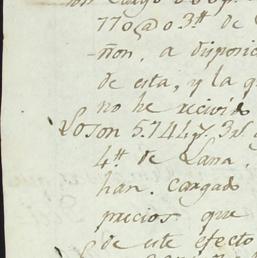 770@ o 3tt de
ñon, a disposic
de esta, y la q
no he recivido
Loson 5.744 7. 3rs
4tt de Lana,
han. cargado
precios que
de este efecto